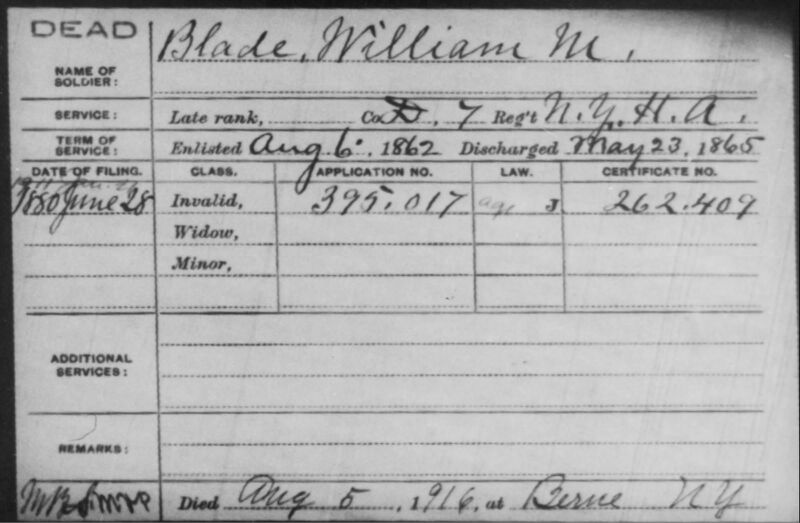 DEAD
NAME OF SOLDIER: Blade, William M.
SERVICE: Late rank, Co. D, 7 Reg't N.Y. H. A.
TERM OF SERVICE: Enlisted Aug 6, 1862 Discharged May 23, 1865
DATE OF FILING. CLASS. APPLICATION NO. LAW. CERTIFICATE NO.
1880 June 28 Invalid, 395.017 age J 262.409
Widow,
Minor,
ADDITIONAL SERVICES:
REMARKS:
Died Aug 5, 1916, at Berne NY